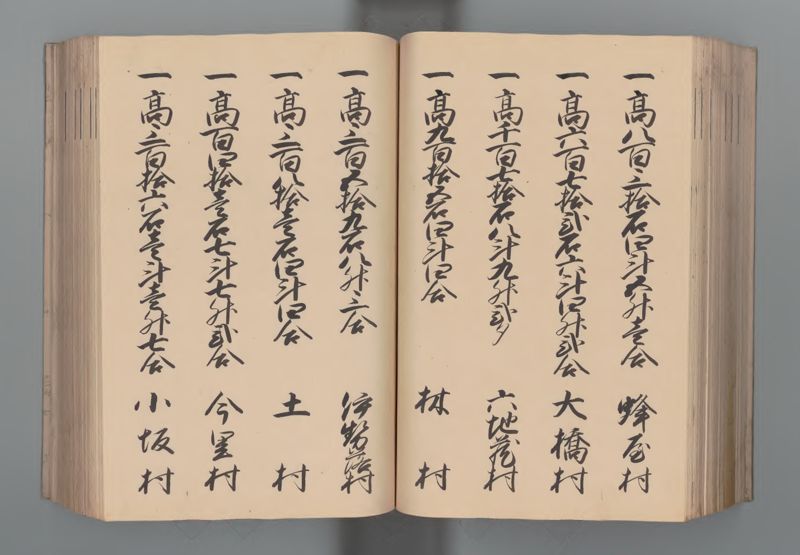 一高八百三拾石四斗五升壱合 蜂屋村
一高六百七拾弐石六斗四升弐合 大橋村
一高千百七拾石八斗九升弐夕 六地蔵村
一高九百拾五石四斗四合 林村
一高三百五拾九石八升三合 伊勢落村
一高三百八拾壱石四斗四合 土村
一高百四拾壱石七斗七升弐合 今里村
一高三百拾六石壱斗壱升七合 小坂村